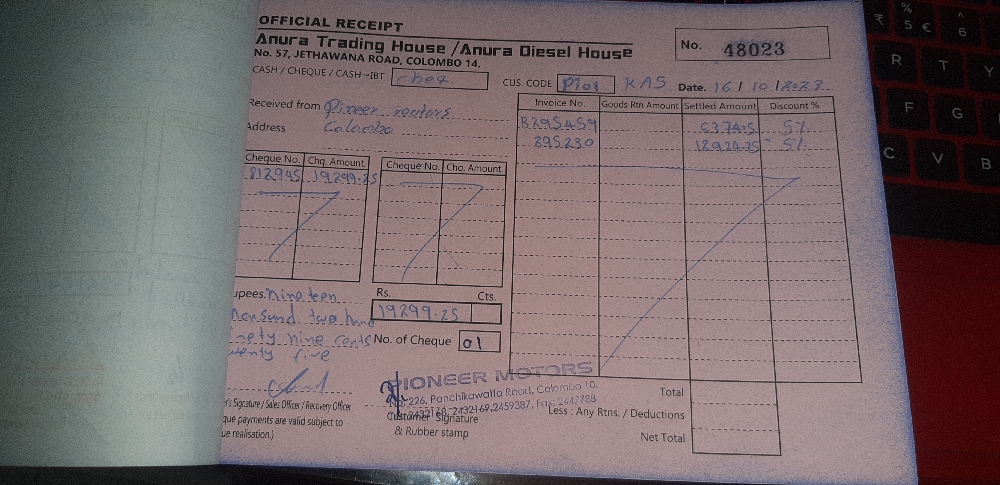 OFFICIAL RECEIPT
Anura Trading House / Anura Diesel House
No. 57, JETHAWANA ROAD, COLOMBO 14.
No. 48023
CASH / CHEQUE / CASH-IBT chex
CUS. CODE P101 KAS Date. 16 / 10 / 2023
Received from Pioneer motors
Address Colombo
Invoice No. Goods Rtn Amount Settled Amount Discount %
B295459 5%
295230 5%
Cheque No. Chq. Amount
812945 19299.25
Cheque No. Chq. Amount
upees. nineteen
thousund two hund
ninety nine cents
twenty five
Rs. Cts.
19299.25
No. of Cheque 01
r's Signature / Sales Officer / Recovery Officer
que payments are valid subject to
ue realisation.)
PIONEER MOTORS
No. 226, Panchikawatta Road, Colombo 10.
2432169, 2459387, Fax: 2447788
Customer Signature
& Rubber stamp
Total
Less : Any Rtns. / Deductions
Net Total
₹ % 5 € ^ 6
R T Y
F G
C V B